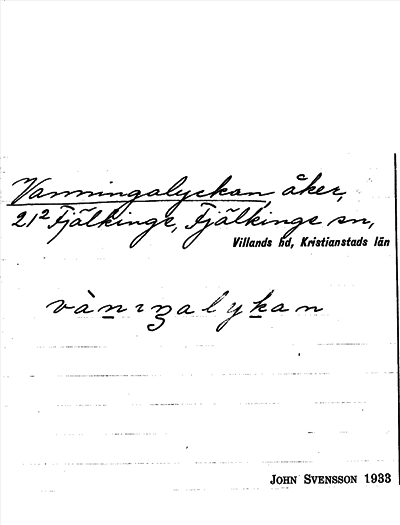 Vanningalyckan, åker,
21² Fjälkinge, Fjälkinge sn,
Villands hd, Kristianstads län
vàniŋalykan
JOHN SVENSSON 1933